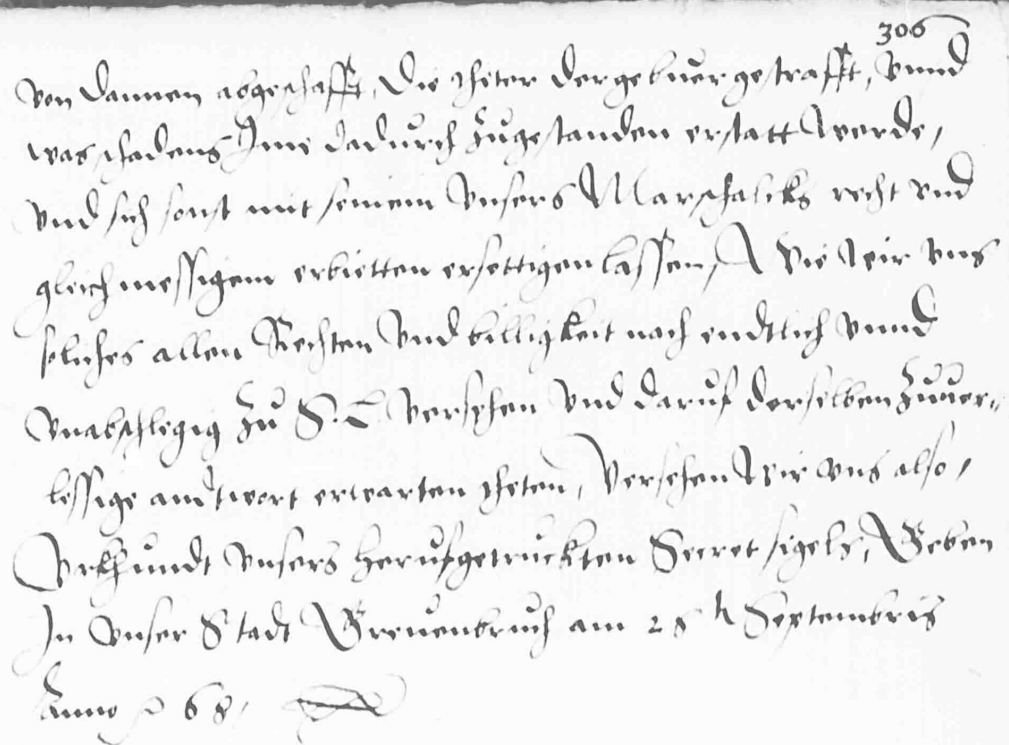 306
von dannen abgeschafft, Die theter der gebuer gestrafft, vnnd
was schadens Jme dadurch zugestanden erstatt werde,
vnd sich sonst mit seinem vnsers Marschalcks recht vnd
gleichmessigem erbietten ersettigen lassen, Wie wir vns
solches allen Rechten vnd billigkeit nach endtlich vnnd
vnabschlegig zu S. L. versehen vnd daruf derselben zuuer-
lessige andtwort erwarten theten, Versehen wir vns also,
Vrkhundt vnsers herufgetruckten Secret sigels, Geben
In vnser Stadt Greuenbruch am 28 t Septembris
Anno 68,